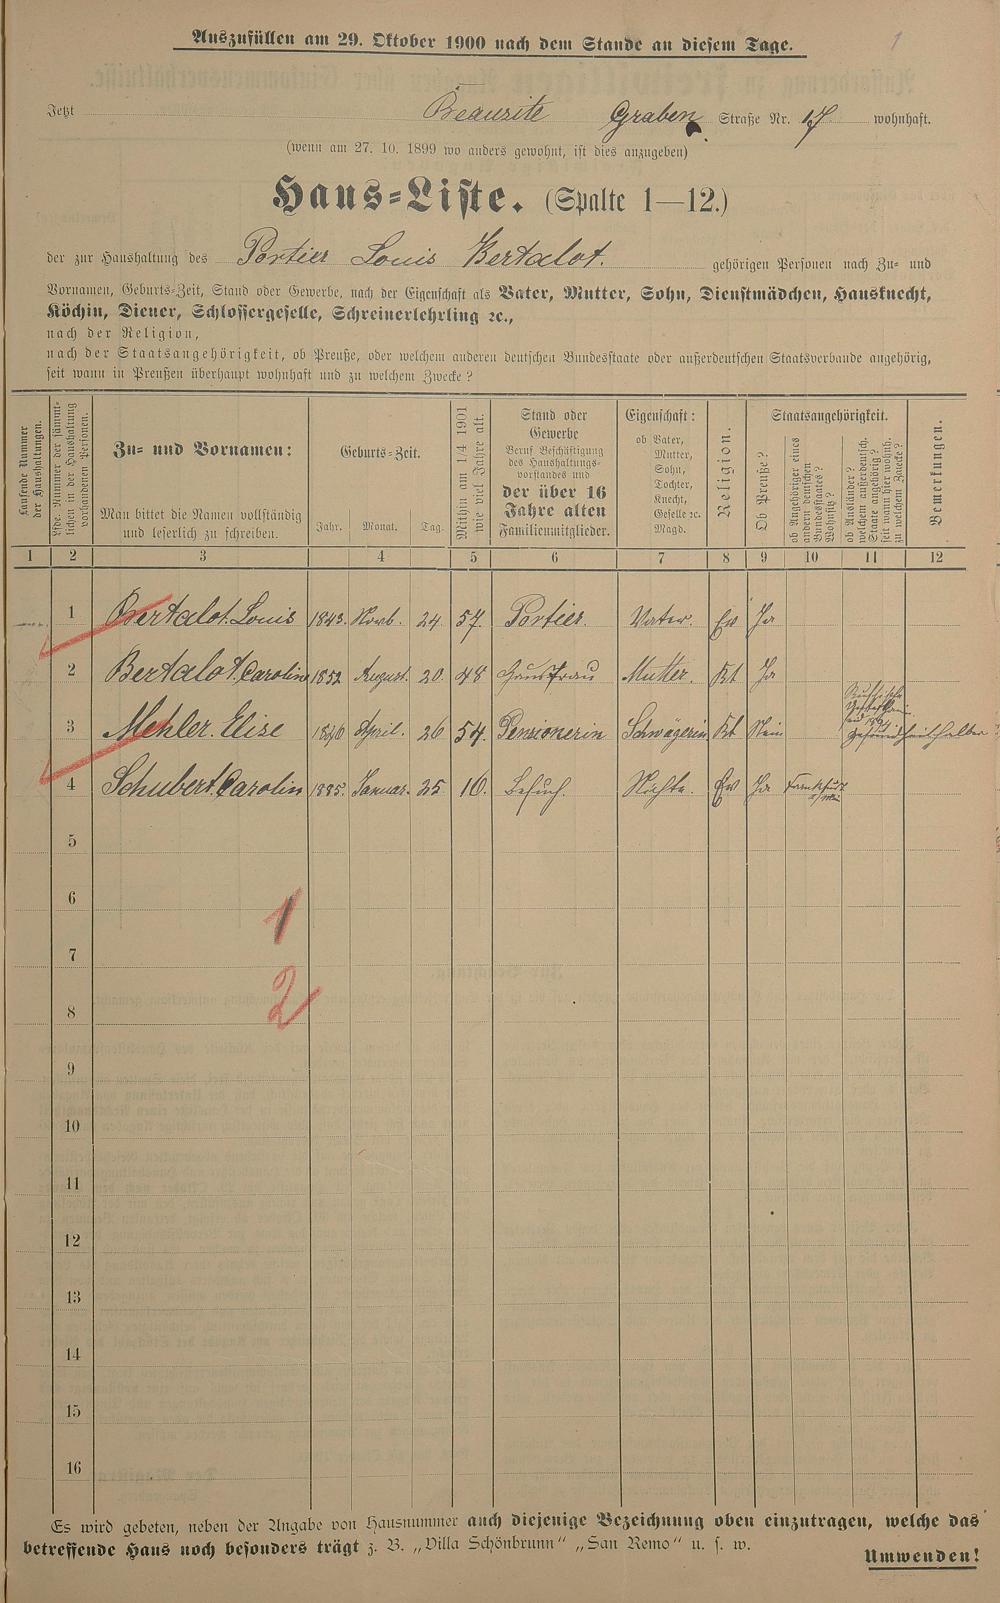 Auszufüllen am 29. Oktober 1900 nach dem Stande an diesem Tage.
1
Jetzt Beausite Graben Straße Nr. 17 wohnhaft.
(wenn am 27. 10. 1899 wo anders gewohnt, ist dies anzugeben)
Haus=Liste. (Spalte 1—12.)
der zur Haushaltung des Portier Louis Bertalot. gehörigen Personen nach Zu= und
Vornamen, Geburts=Zeit, Stand oder Gewerbe, nach der Eigenschaft als Vater, Mutter, Sohn, Dienstmädchen, Hausknecht,
Köchin, Diener, Schlossergeselle, Schreinerlehrling ꝛc.,
nach der Religion,
nach der Staatsangehörigkeit, ob Preuße, oder welchem anderen deutschen Bundesstaate oder außerdeutschen Staatsverbande angehörig,
seit wann in Preußen überhaupt wohnhaft und zu welchem Zwecke?
Laufende Nummer
der Haushaltungen.
Lfde. Nummer der sämmt=
lichen in der Haushaltung
vorhandenen Personen.
Zu= und Vornamen:
Man bittet die Namen vollständig
und leserlich zu schreiben.
Geburts=Zeit.
Jahr. Monat. Tag.
Mithin am 1/4 1901
wie viel Jahre alt.
Stand oder
Gewerbe
Beruf Beschäftigung
des Haushaltungs-
vorstandes und
der über 16
Jahre alten
Familienmitglieder.
Eigenschaft:
ob Vater,
Mutter,
Sohn,
Tochter,
Knecht,
Geselle ꝛc.
Magd.
Religion.
Staatsangehörigkeit.
Ob Preuße?
ob Angehöriger eines
andern deutschen
Bundesstaates?
Wohnsitz?
ob Ausländer?
welchem außerdeutsch.
Staate angehörig?
seit wann hier wohnh.
zu welchem Zwecke?
Bemerkungen.
1 2 3 4 5 6 7 8 9 10 11 12
1 Bertalot. Louis 1843. Novb. 24. 57. Portier. Vater. Ev Ja
2 Bertalot. Carolin 1852 August. 20. 48 Hausfrau Mutter. Kt Ja
3 Mehler. Elise 1846 April. 26 54. Pensionerin Schwägerin Kt Nein Russische gesundheithalber
4 Schubert. Carolin 1885. Januar. 25. 16. Besuch. Nichte. Ev Ja Frankfurt a/Main
5
6
1
7
2
8
9
10
11
12
13
14
15
16
Es wird gebeten, neben der Angabe von Hausnummer auch diejenige Bezeichnung oben einzutragen, welche das
betreffende Haus noch besonders trägt z. B. „Villa Schönbrunn" „San Remo" u. s. w.
Umwenden!